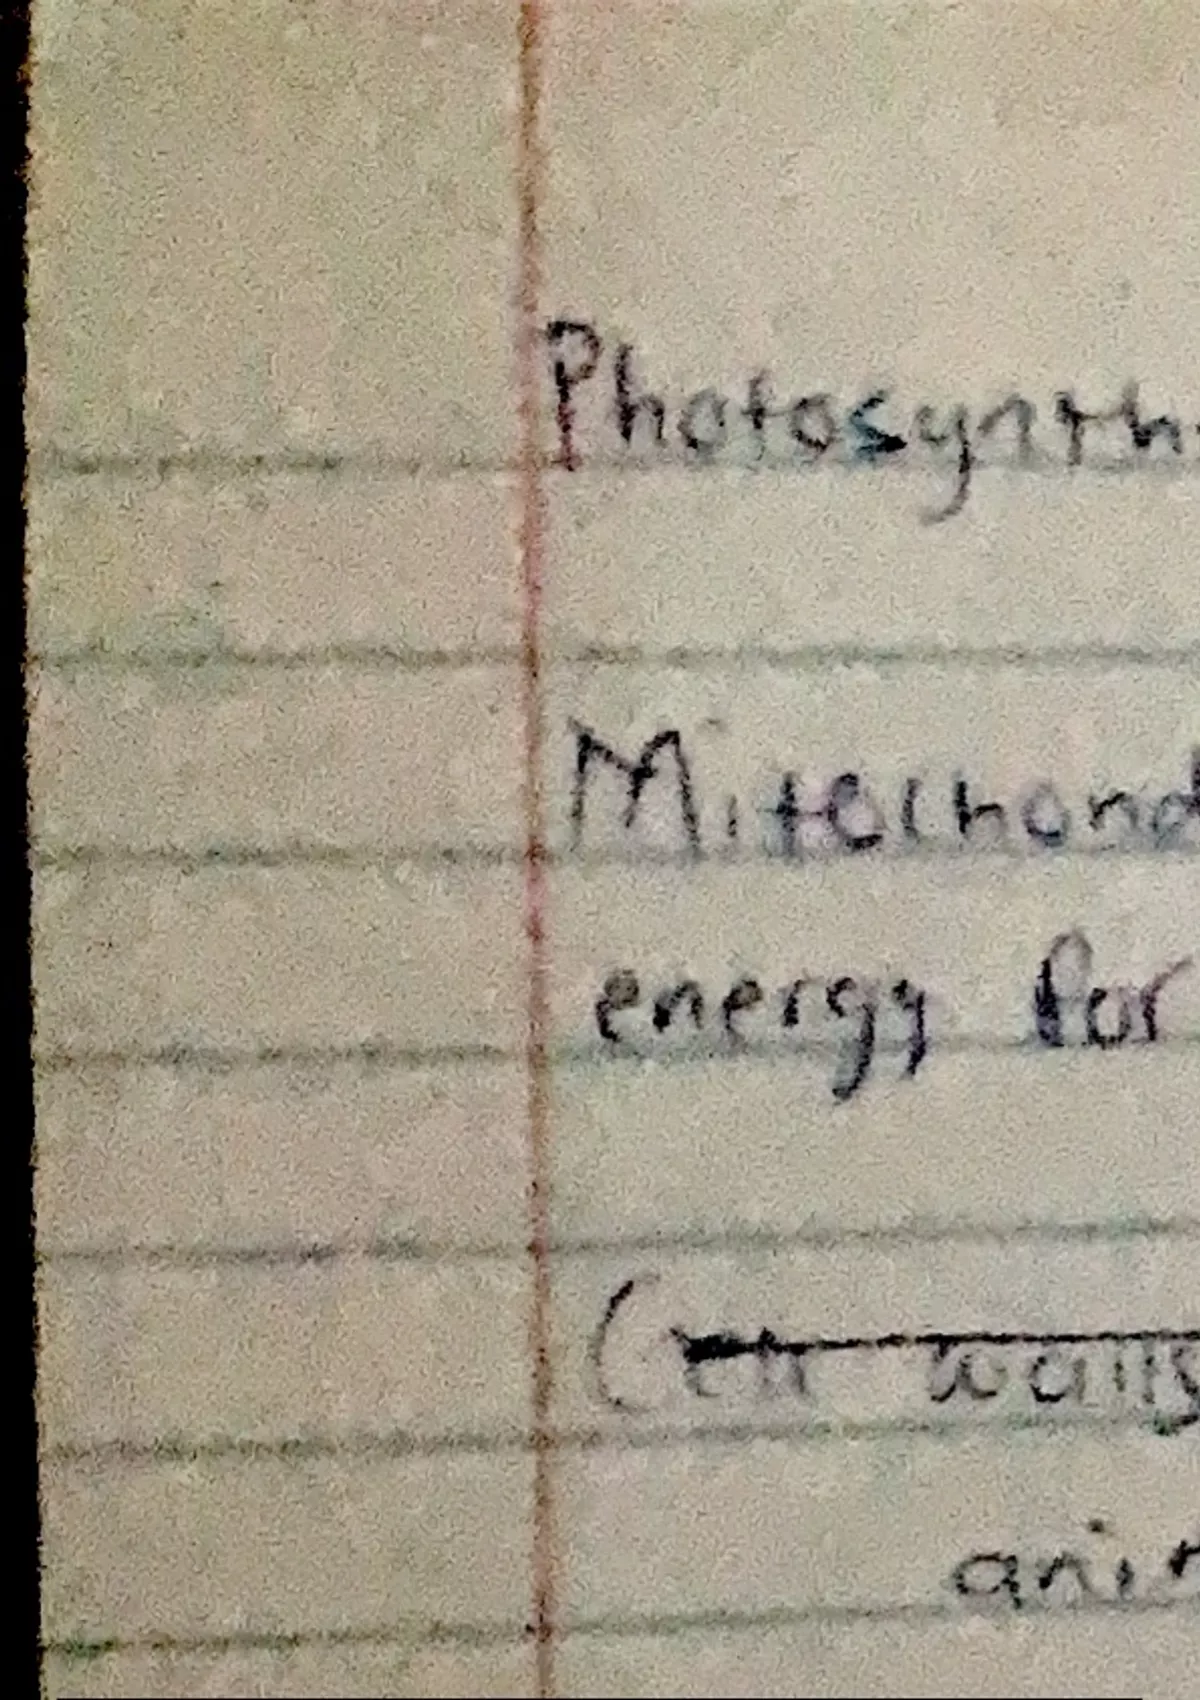 Photosynth
Mitochond
energy for
Cell walls
anim